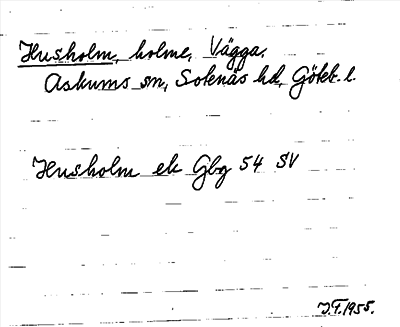 Husholm, holme, Vägga,
Askums sn, Sotenäs hd, Göteb. l.
Husholm ek Gbg 54 SV
J.F. 1955.